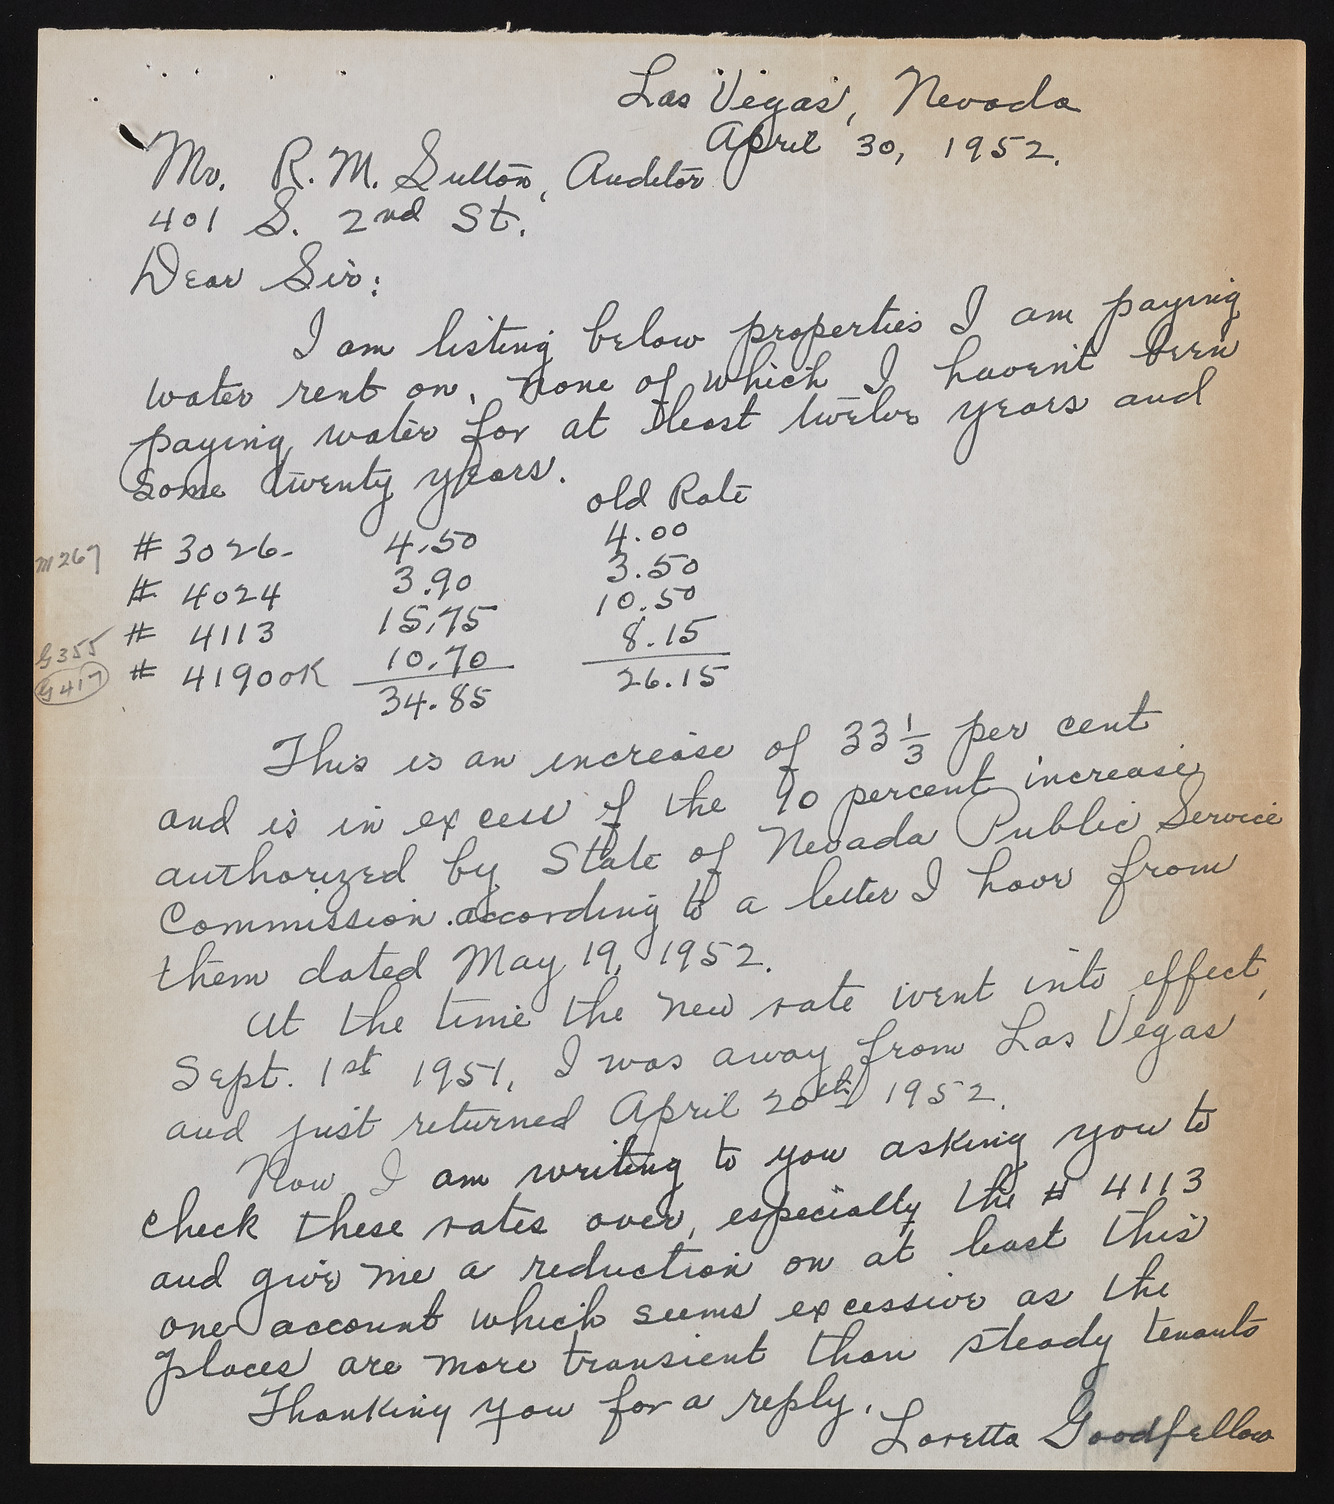 Las Vegas, Nevada
April 30, 1952.
Mr. R. M. Sutton, Auditor
401 S. 2nd St.
Dear Sir:
I am listing below properties I am paying
water rent on, none of which I haven't been
paying water for at least twelve years and
some twenty years.
old Rate
M267 # 3026- 4.50 4.00
# 4024 3.90 3.50
# 4113 15.75 10.50
G355
G417 # 4190 OK 10.70 8.15
34.85 26.15
This is an increase of 33 1/3 per cent
and is in excess of the 90 percent increase
authorized by State of Nevada Public Service
Commission. according to a letter I have from
them dated May 19, 1952.
At the time the new rate went into effect,
Sept. 1st 1951, I was away from Las Vegas
and just returned April 20th 1952.
Now I am writing to you asking you to
check these rates over, especially the # 4113
and give me a reduction on at least this
one account which seems excessive as the
places are more transient than steady tenants
Thanking you for a reply,
Loretta Goodfellow